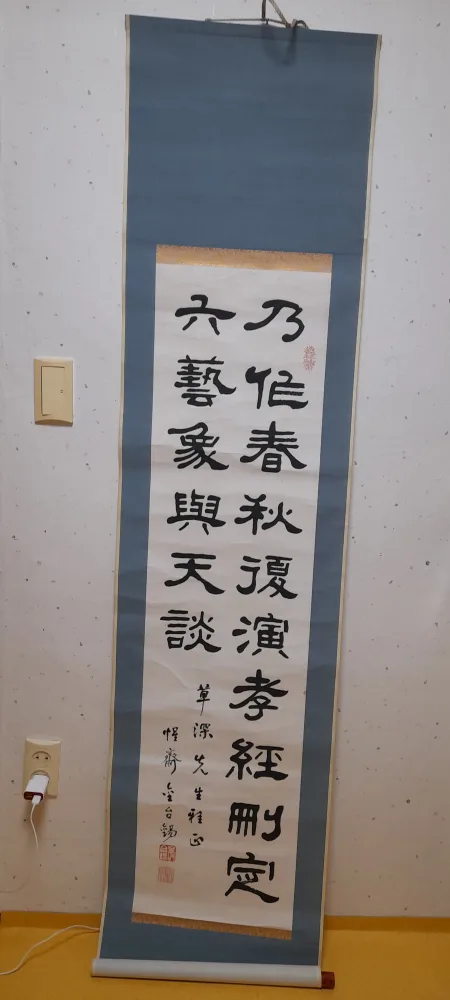 乃作春秋復演孝經刪定
六藝象與天談
草深先生雅正
惺齋金台錫